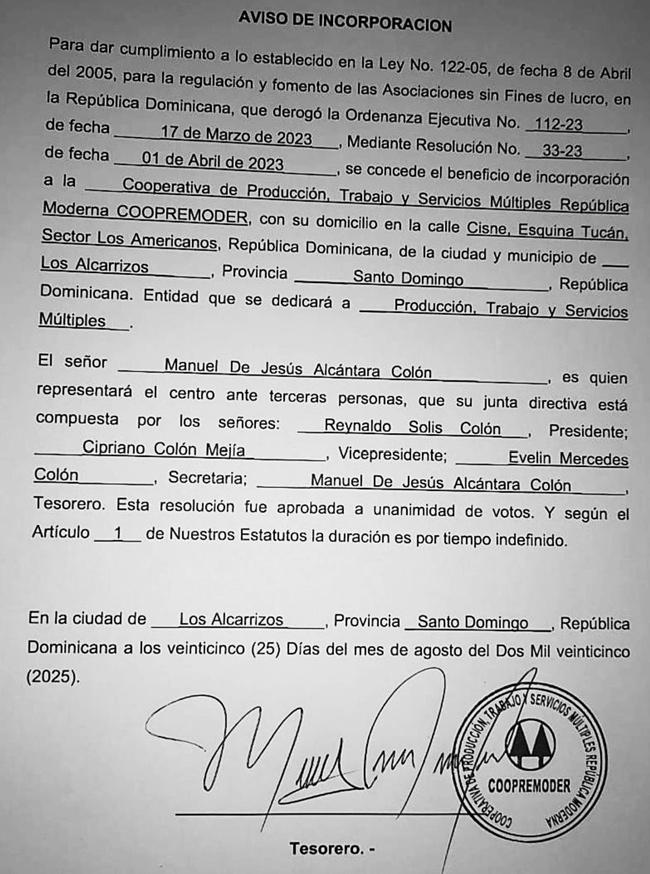 AVISO DE INCORPORACION
Para dar cumplimiento a lo establecido en la Ley No. 122-05, de fecha 8 de Abril
del 2005, para la regulación y fomento de las Asociaciones sin Fines de lucro, en
la República Dominicana, que derogó la Ordenanza Ejecutiva No. 112-23,
de fecha 17 de Marzo de 2023, Mediante Resolución No. 33-23,
de fecha 01 de Abril de 2023, se concede el beneficio de incorporación
a la Cooperativa de Producción, Trabajo y Servicios Múltiples República
Moderna COOPREMODER, con su domicilio en la calle Cisne, Esquina Tucán,
Sector Los Americanos, República Dominicana, de la ciudad y municipio de
Los Alcarrizos, Provincia Santo Domingo, República
Dominicana. Entidad que se dedicará a Producción, Trabajo y Servicios
Múltiples.
El señor Manuel De Jesús Alcántara Colón, es quien
representará el centro ante terceras personas, que su junta directiva está
compuesta por los señores: Reynaldo Solis Colón, Presidente;
Cipriano Colón Mejía, Vicepresidente; Evelin Mercedes
Colón, Secretaria; Manuel De Jesús Alcántara Colón,
Tesorero. Esta resolución fue aprobada a unanimidad de votos. Y según el
Artículo 1 de Nuestros Estatutos la duración es por tiempo indefinido.
En la ciudad de Los Alcarrizos, Provincia Santo Domingo, República
Dominicana a los veinticinco (25) Días del mes de agosto del Dos Mil veinticinco
(2025).
COOPERATIVA DE PRODUCCIÓN, TRABAJO Y SERVICIOS MÚLTIPLES REPÚBLICA MODERNA
COOPREMODER
Tesorero. -